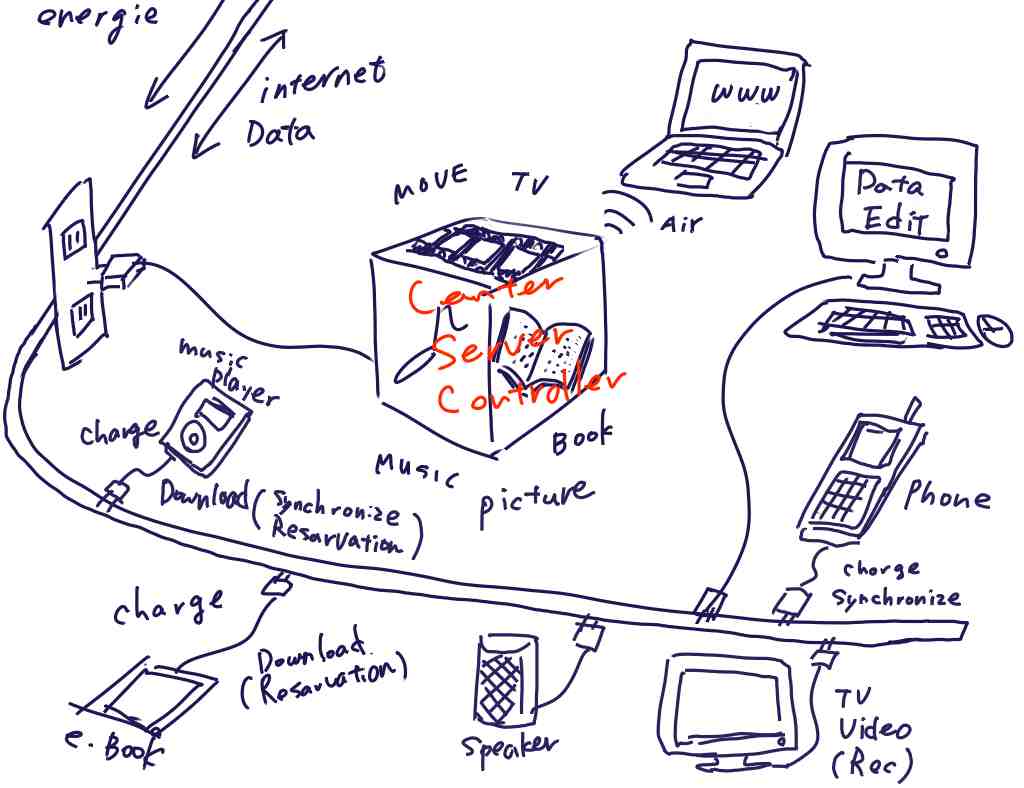 energie
internet
Data
www
MOVE TV
Air
Data
Edit
Canter
Server
Controller
music
player
charge
Book
Music
picture
Download (Synchronize
Resarvation)
Phone
charge
Synchronize
charge
Download
(Resarvation)
e.Book
Speaker
TV
Video
(Rec)